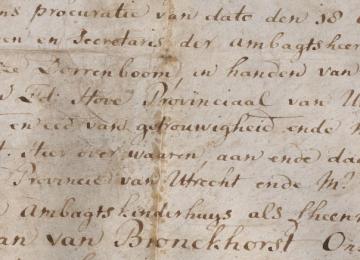 ns procuratie van dato den 18
en en Secretaris der ambagtsheer
Dorrenboom, in handen van
Ed: Hove Provinciaal van U
en eed van getrouwigheid ende
Hier over waaren, aan ende da
Provincie van Utrecht ende Mr.
Ambagtskinderhuys als Lheen
an van Bronckhorst On